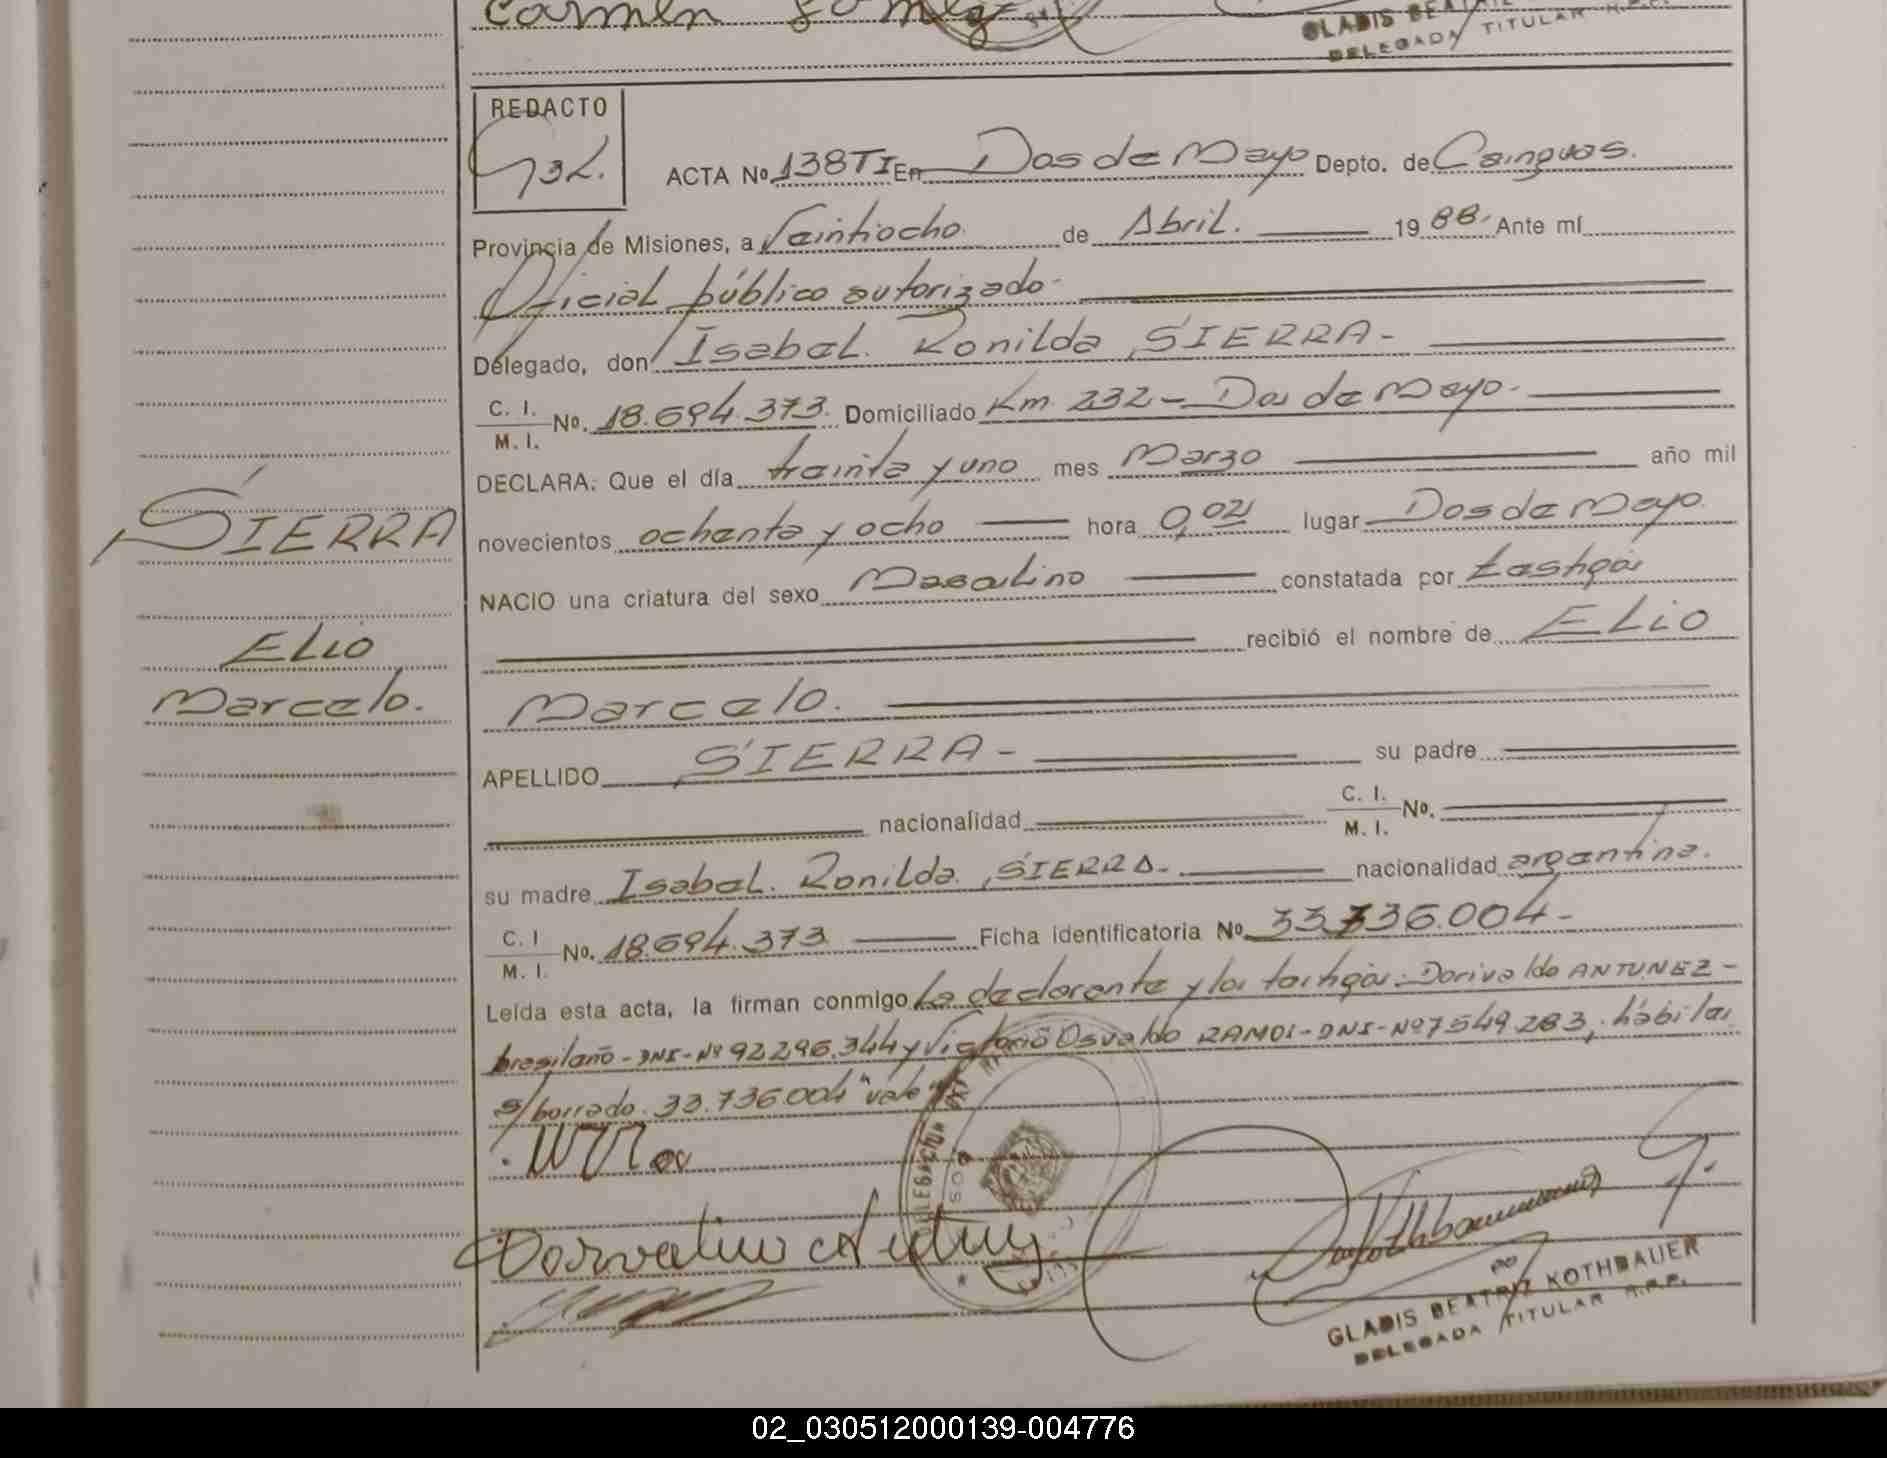 Carmen Gomez
GLADIS BEATRIZ
DELEGADA TITULAR R.P.P.
REDACTO
ACTA Nº 138TI En Dos de Mayo Depto. de Cainguas.
Provincia de Misiones, a Veintiocho de Abril. 1988. Ante mí
Oficial público autorizado-
Delegado, don Isabel. Ronilda SIERRA-
C. I.
M. I. Nº. 18.694.373. Domiciliado Km 232 - Dos de Mayo-
DECLARA: Que el día treinta y uno mes Marzo año mil
novecientos ochenta y ocho hora 0,02 lugar Dos de Mayo.
SIERRA
NACIO una criatura del sexo Masculino constatada por testigos
recibió el nombre de ELio
ELio
Marcelo.
Marcelo.
APELLIDO SIERRA- su padre
nacionalidad C. I.
M. I. Nº.
su madre Isabel. Ronilda SIERRA- nacionalidad argentina.
C. I
M. I. Nº. 18.694.373 Ficha identificatoria Nº 33.736.004-
Leída esta acta, la firman conmigo La declarante y los testigos: Dorivaldo ANTUNEZ-
brasilaño-DNI-Nº 92296.344 y Victorio Osvaldo RAMOS-DNI-Nº 7549.283, hábiles
s/borrado. 33.736.004 "vale"
DELEGACION
GLADIS BEATRIZ KOTHBAUER
DELEGADA TITULAR R.P.P.
02_030512000139-004776